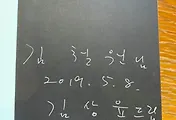 김 철 원 님
2019. 5. 8.
김 상 욱 드림